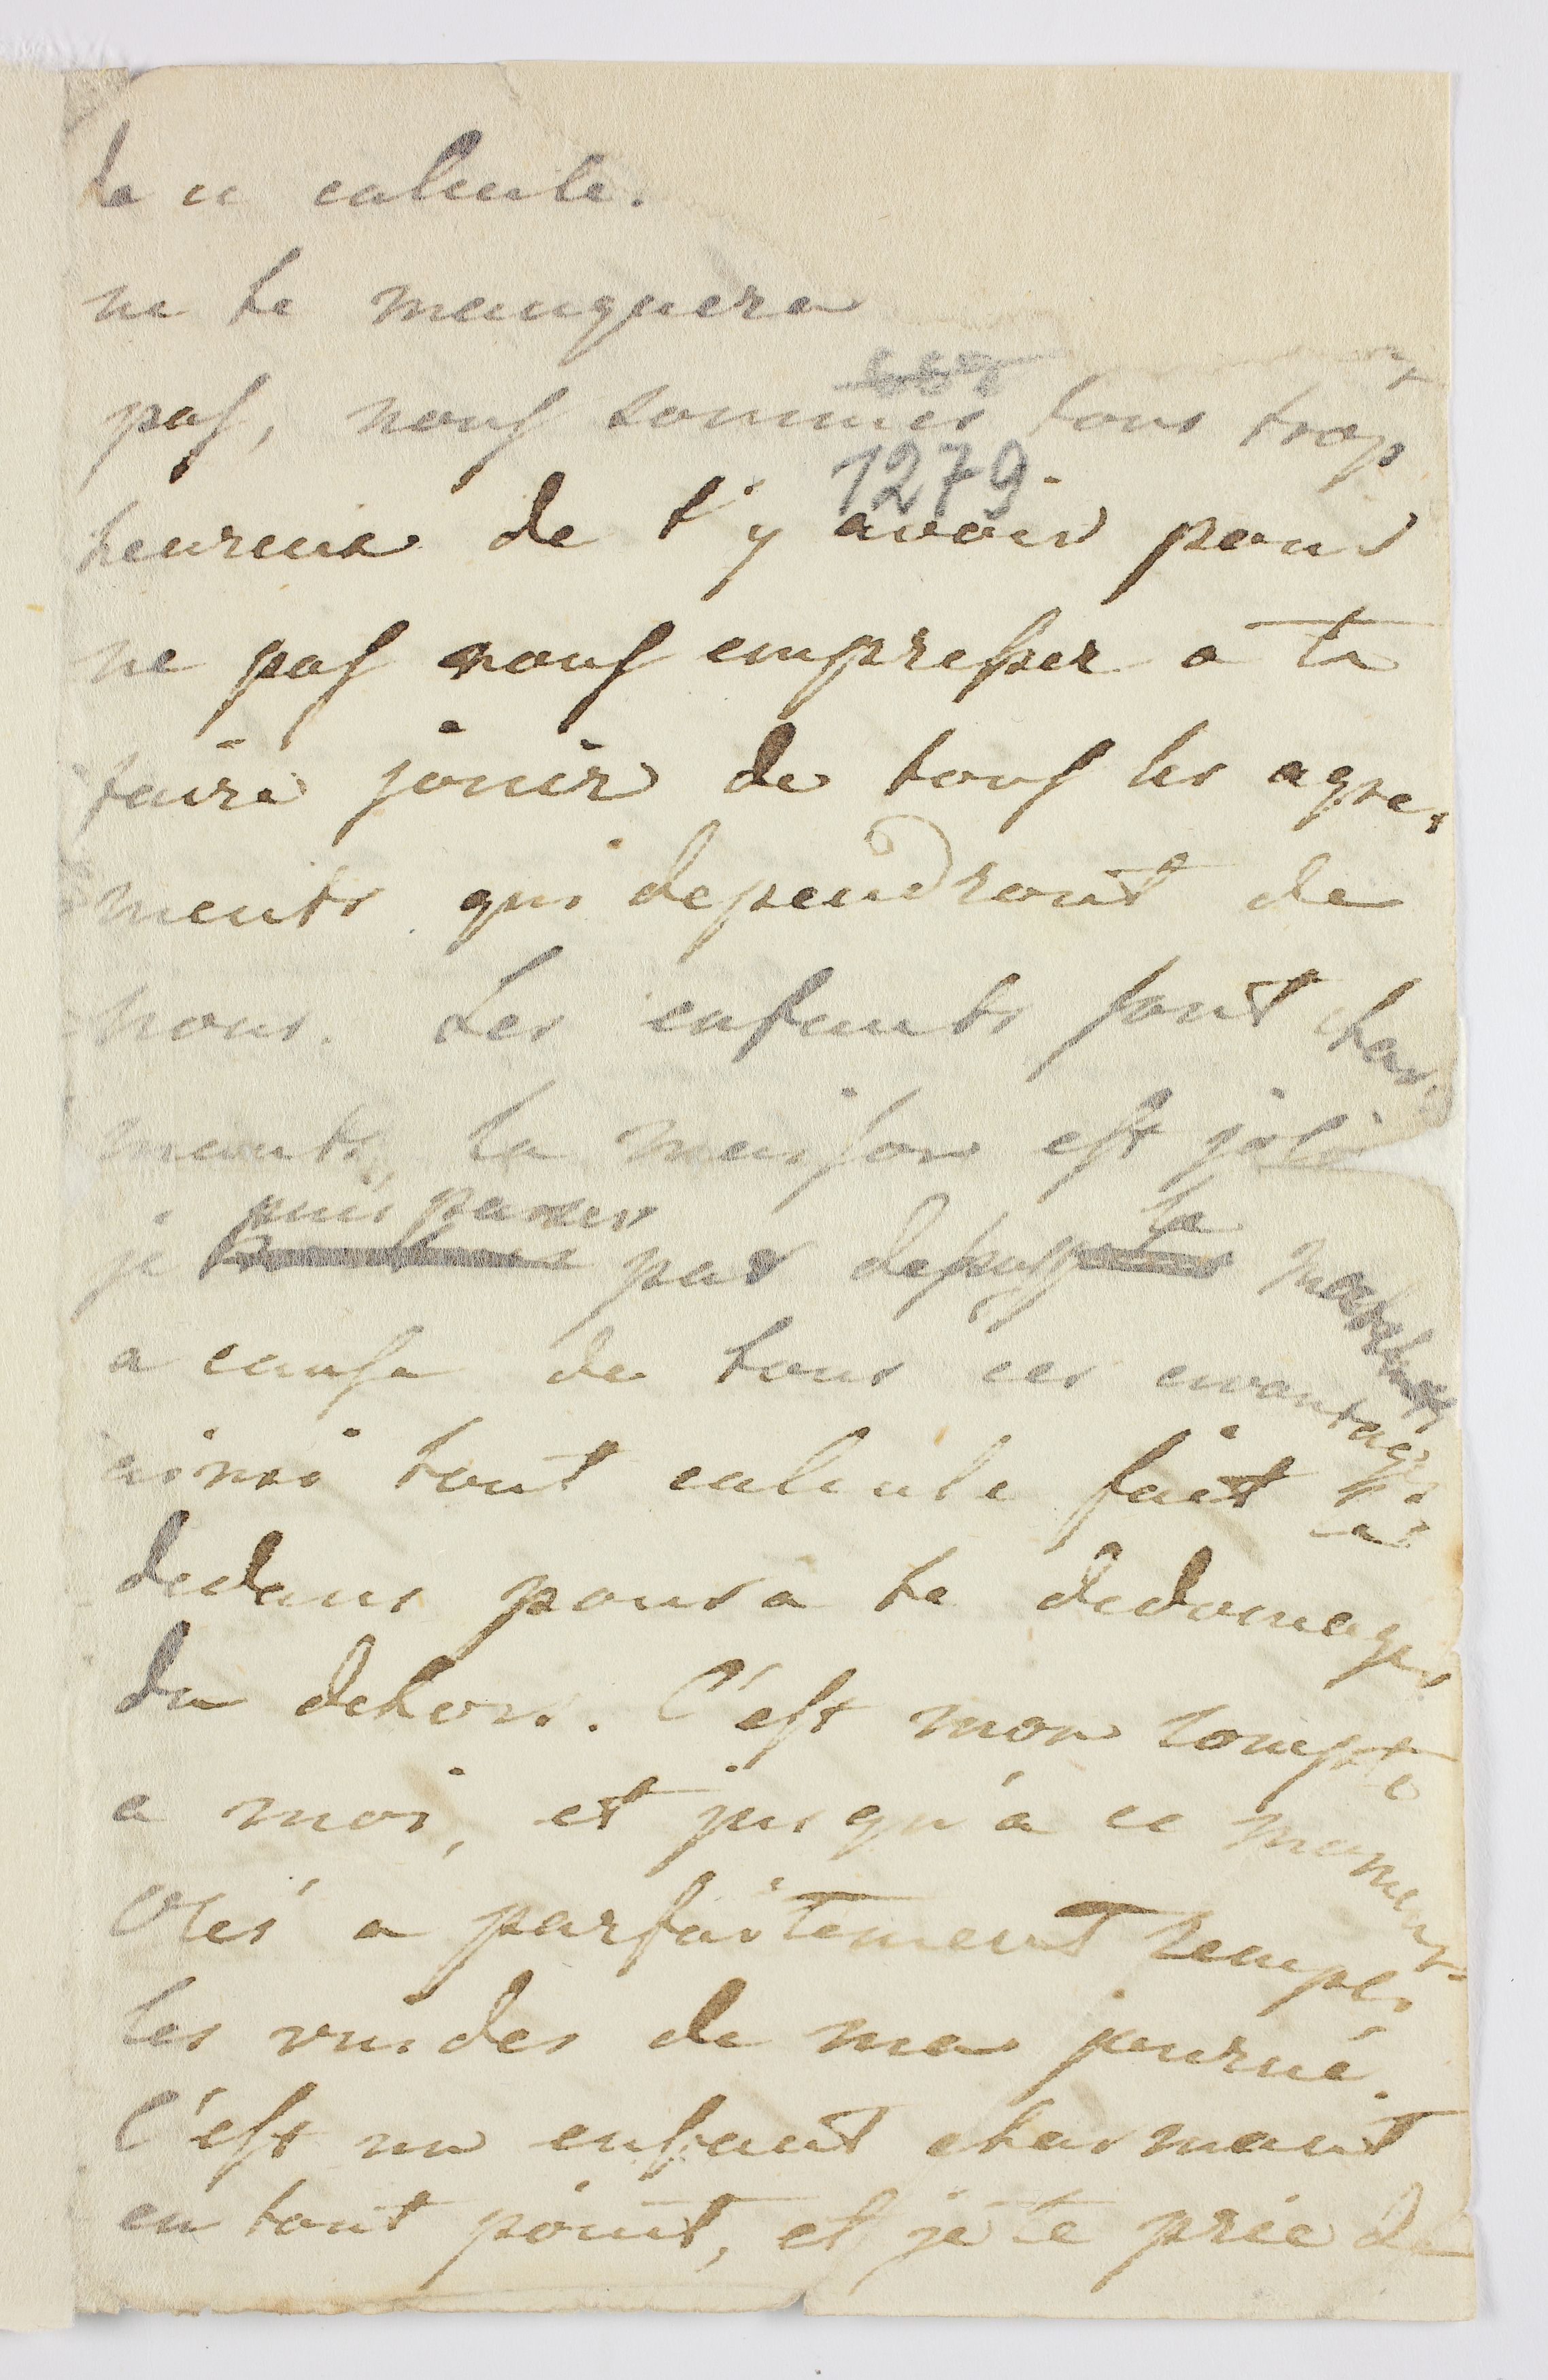 te ce calcule.
ne te manquera
pas, nous sommes tous trop
1279.
heureux de t'y avoir pour
ne pas nous empresser a te
faire jouir de tous les agre-
ments qui dependront de
nous. Les enfants sont char-
mants, la maison est joli
puis penser la
je pas depuis
a cause de tous ces avantages
ainsi tout calcule fait le
dedans poura te dedomager
du dehors. C'est mon compte
a moi, et jusqu'à ce moment
a parfaitement rempli
les vuides de ma journé.
C'est un enfant charmant
en tout point, et je te prie de